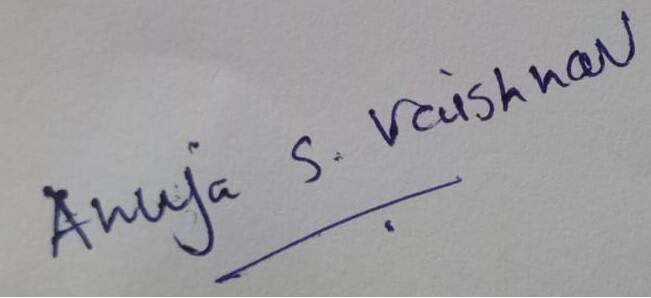 Anuja S. Vaishnav